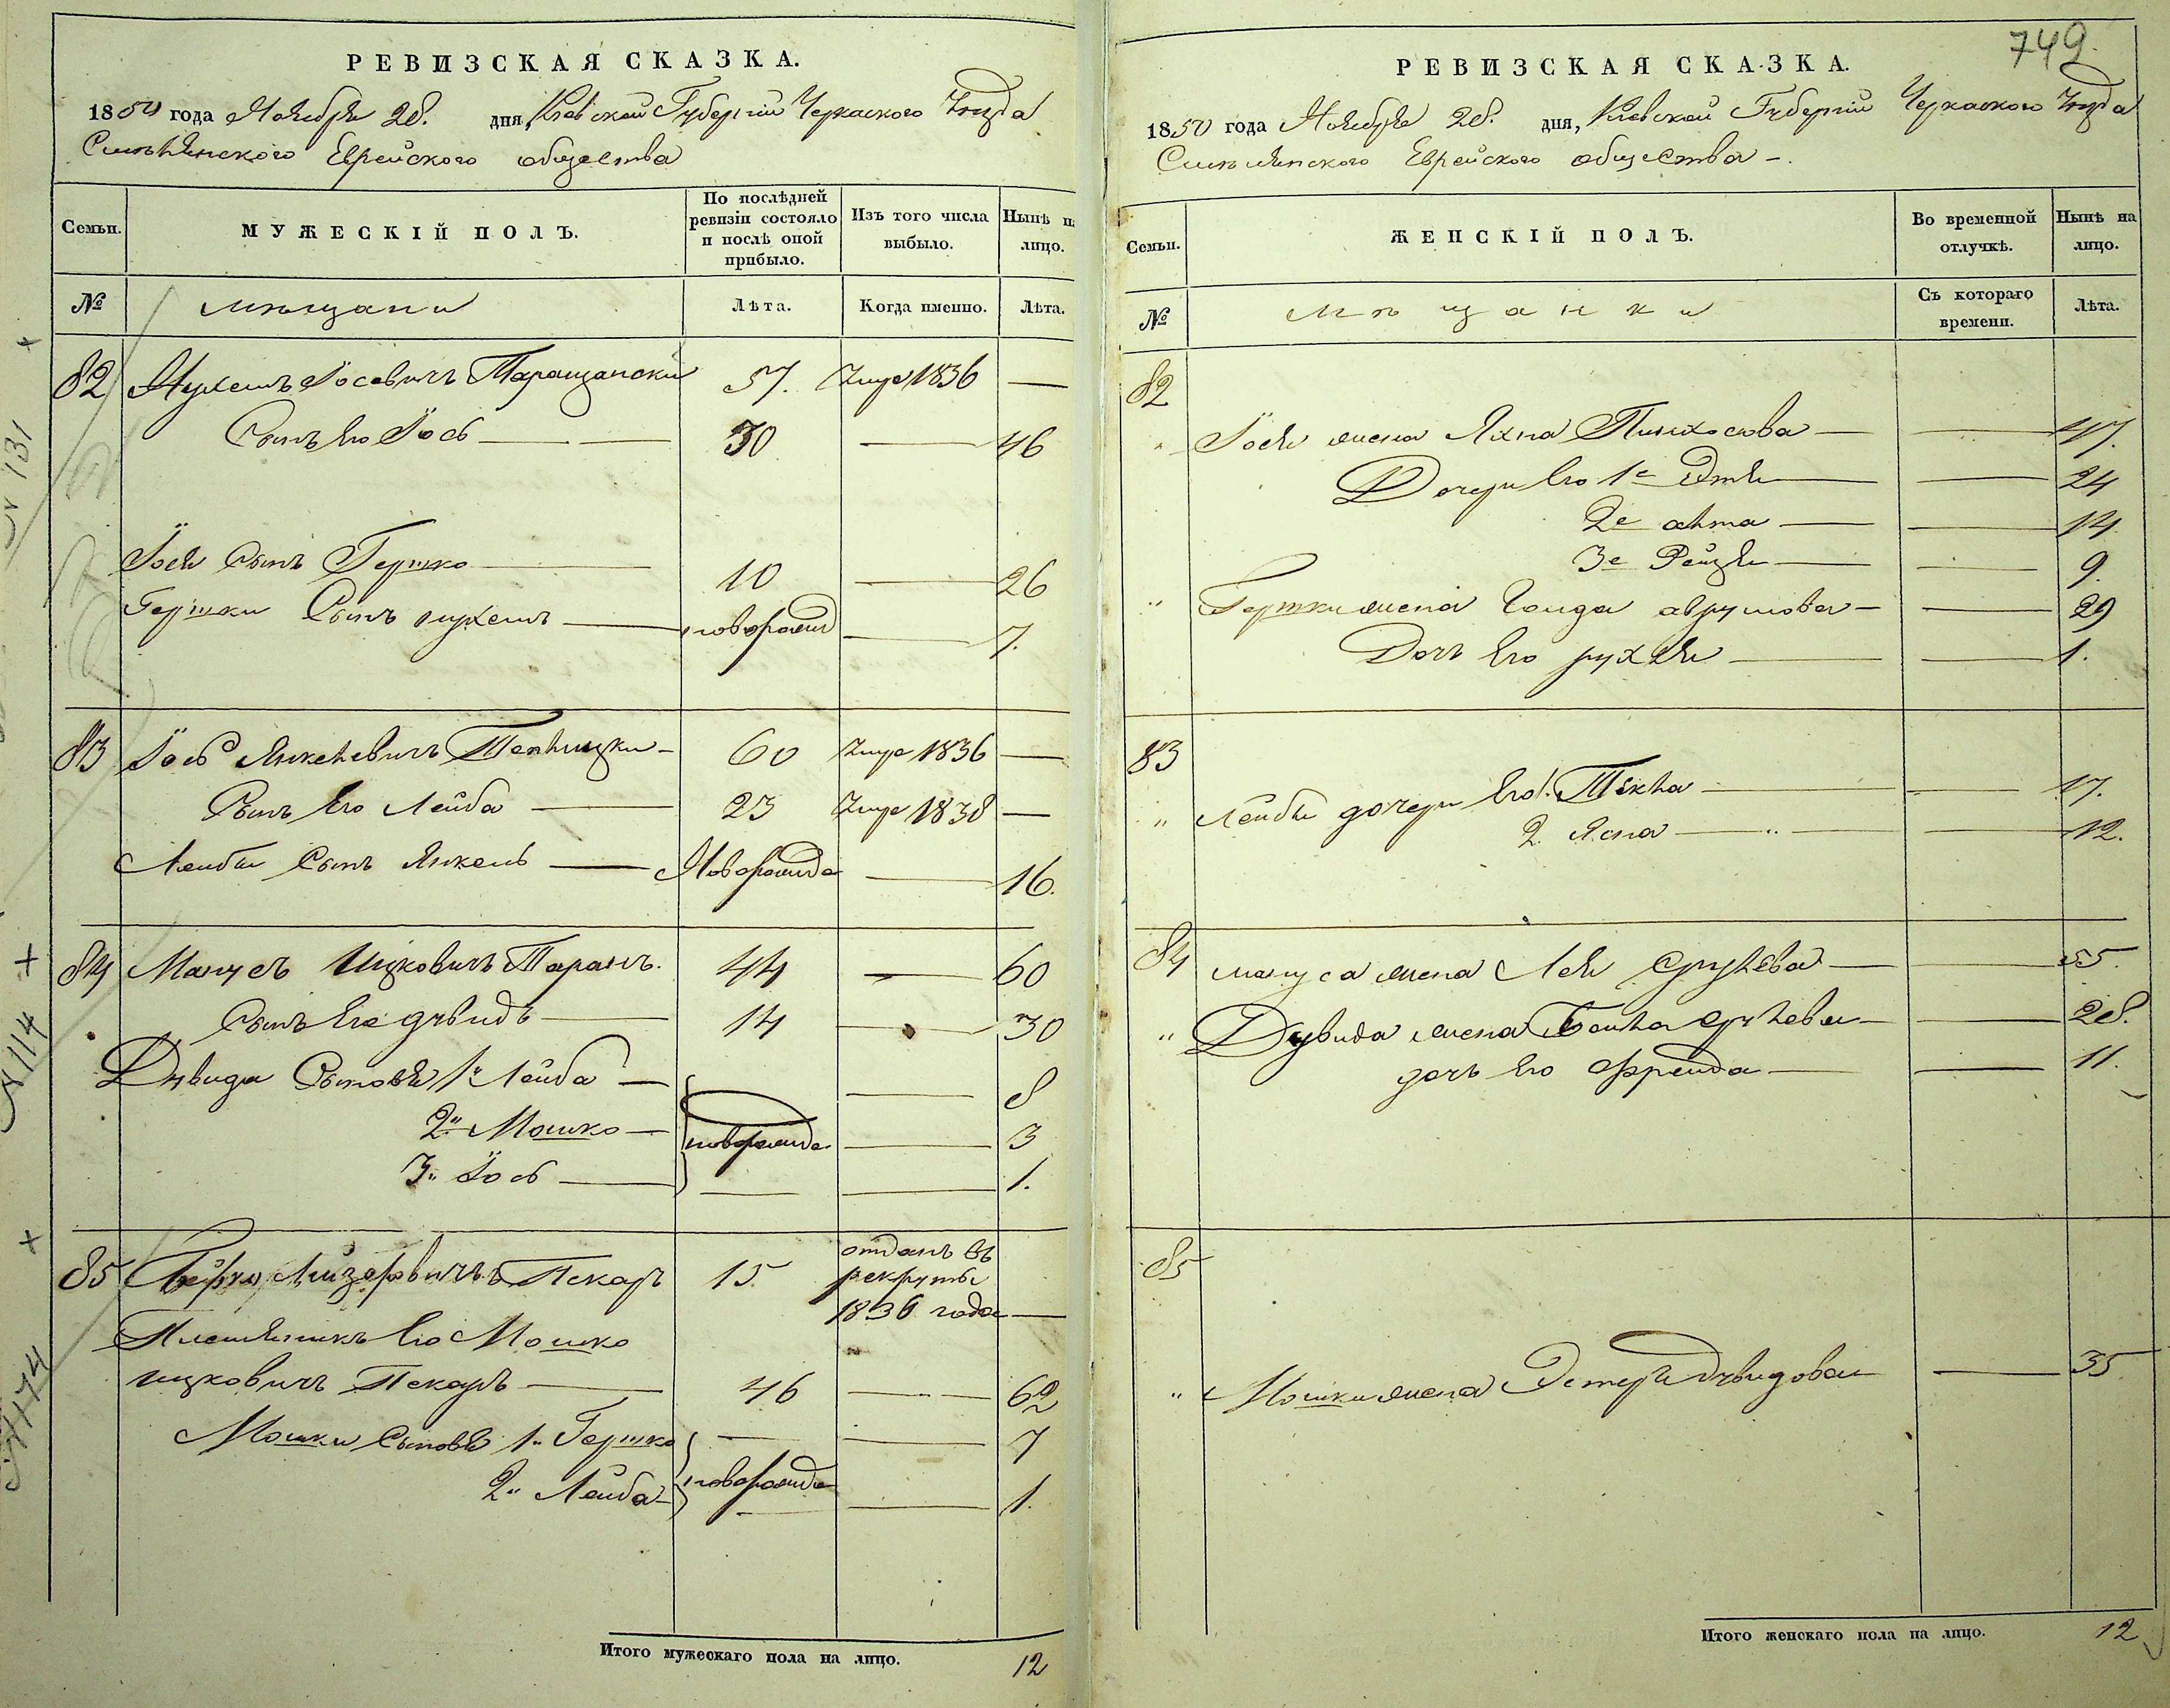 РЕВИЗСКАЯ СКАЗКА.
1850 года Ноября 28. дня, Кіевской Губерніи Черкаского Уѣзда
Смѣлянского Еврейского общества
Семьи.
МУЖЕСКІЙ ПОЛЪ.
По послѣдней ревизіи состояло и послѣ оной прибыло.
Изъ того числа выбыло.
Нынѣ на лицо.
№
мѣщани
Лѣта.
Когда именно.
Лѣта.
82 Нухимъ Іосевичъ Таращански 57. Умре 1836 —
Сынъ его Іось — 30 — 46
Іося сынъ Гершко — 10 — 26
Гершки Сынъ нухимъ — новорожд — 7.
83 Іось Янкелевичъ Теплицки — 60 Умре 1836 —
Сынъ его Лейба — 23 Умре 1838 —
Лейбы Сынъ Янкель — Новорожде — 16.
84 Манусъ Ицковичъ Таранъ. 44 — 60
Сынъ его дувидъ — 14 — 30
Дувида Сыновья 1й Лейба — — 8
2й Мошко — новорожде — 3
3й Іось — — 1.
85 Берко Лизеровичъ Пекарь 15 отданъ въ
рекруты
1836 года —
Племянникъ его Мошко
ицковичъ Пекарь — 46 — 62
Мошки Сыновья 1й Гершко — — 7
2й Лейба новорожде — 1.
Итого мужескаго пола на лицо. 12
749.
РЕВИЗСКАЯ СКАЗКА.
1850 года Ноября 28. дня, Кіевской Губерніи Черкаского Уѣзда
Смѣлянского Еврейского общества —.
Семьи.
ЖЕНСКІЙ ПОЛЪ.
Во временной отлучкѣ.
Нынѣ на лицо.
№
мѣщанки
Съ котораго времени.
Лѣта.
82
" Іося жена Яхна Пинхосова — — 47.
Дочери его 1е Этя — — 24
2е — — 14
3е Рейзя — — 9.
" Гершки жена аврумова — — 29
Дочь его рухля — — 1.
83
" Лейбы дочери его 1. — — 17.
2. — " — — 12.
84 мануса жена Лея срулева — — 55.
" Дувида жена срулева — — 28.
дочь его Фрейда — — 11.
85
" Мошки жена Эстеръ дувидова — — 35
Итого женскаго пола на лицо. 12